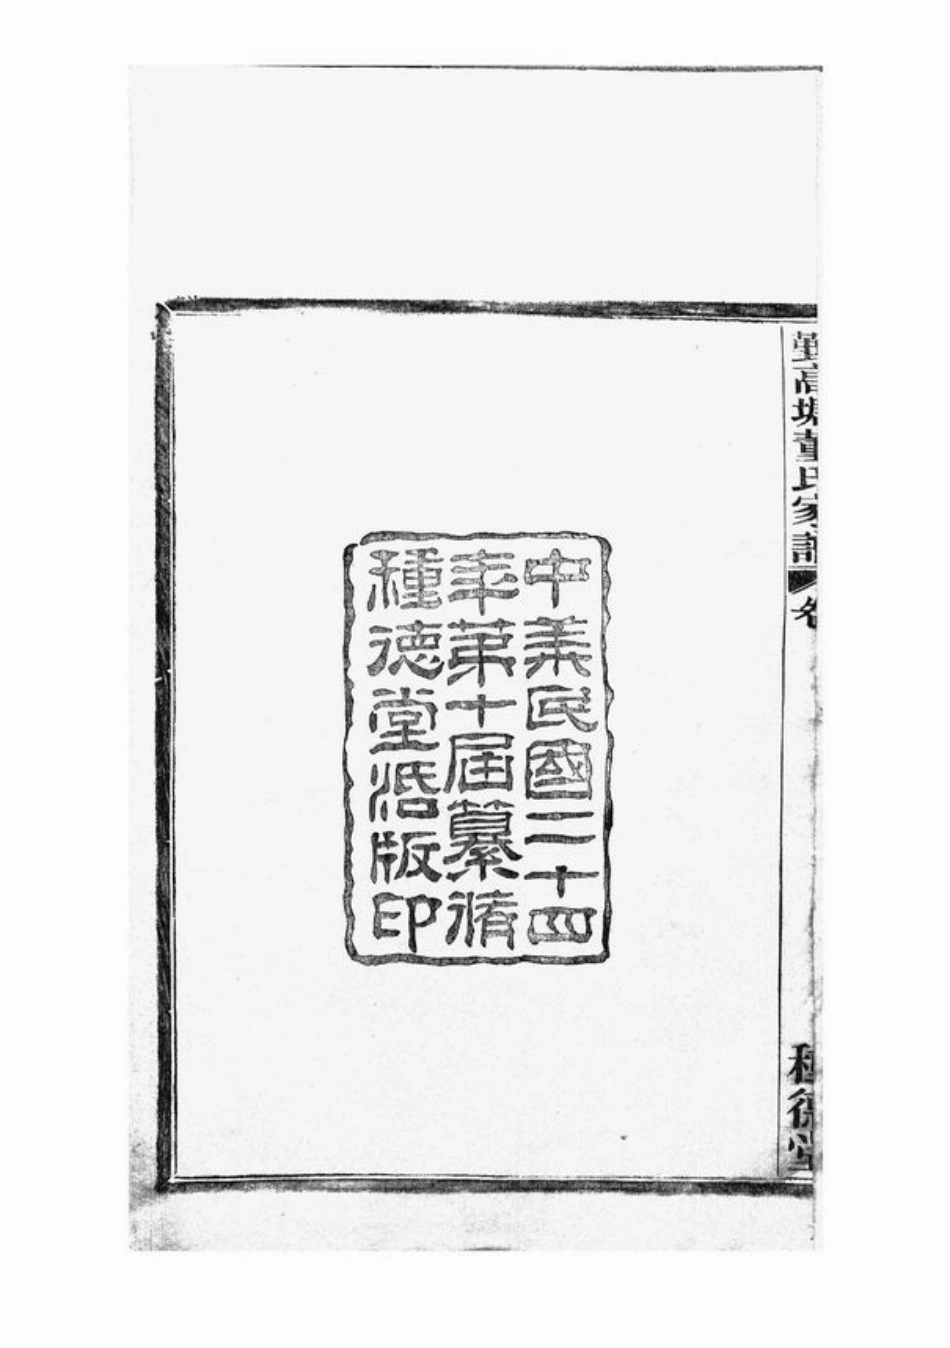 鄞高塘董氏家譜 卷 種德堂
中華民國二十四
年第十屆纂修
種德堂活版印